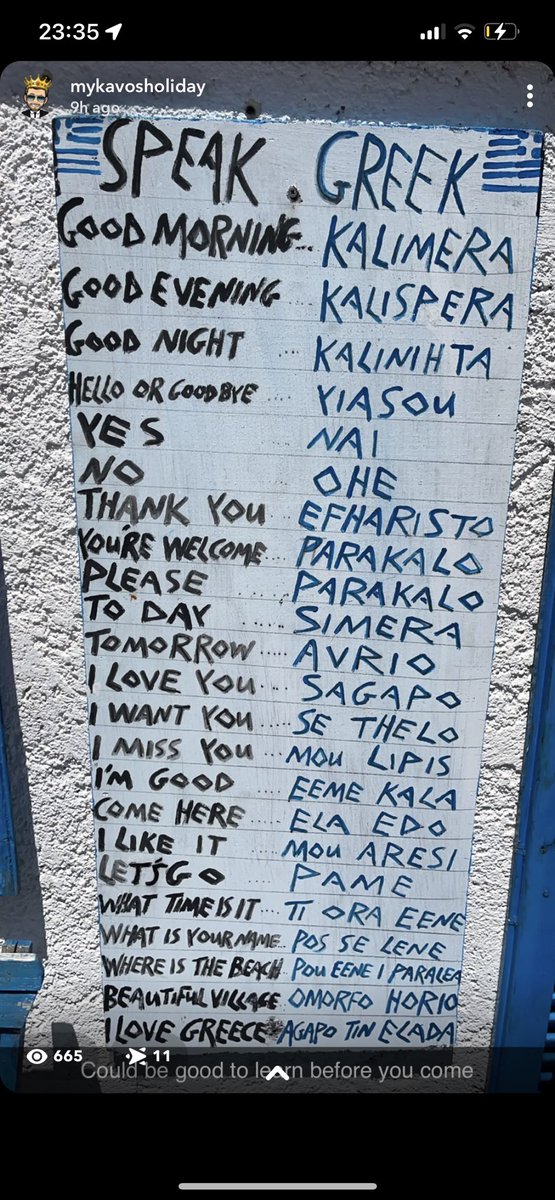 23:35
mykavosholiday
9h ago
SPEAK GREEK
GOOD MORNING... KALIMERA
GOOD EVENING ... KALISPERA
GOOD NIGHT .... KALINIHTA
HELLO OR GOODBYE ... YIASOU
YES ... NAI
NO OHE
THANK YOU ... EFHARISTO
YOURE WELCOME... PARAKALO
PLEASE ... PARAKALO
TO DAY ..... SIMERA
TOMORROW .... AVRIO
I LOVE YOU ... SAGAPO
I WANT YOU ... SE THELO
I MISS YOU ... MOU LIPIS
I'M GOOD ... EEME KALA
COME HERE ... ELA EDO
I LIKE IT ... MOU ARESI
LET'S GO ... PAME
WHAT TIME IS IT ... TI ORA EENE
WHAT IS YOUR NAME.. POS SE LENE
WHERE IS THE BEACH POU EENE I PARALEA
BEAUTIFUL VILLAGE OMORFO HORIO
I LOVE GREECE AGAPO TIN ELADA
665 11
Could be good to learn before you come